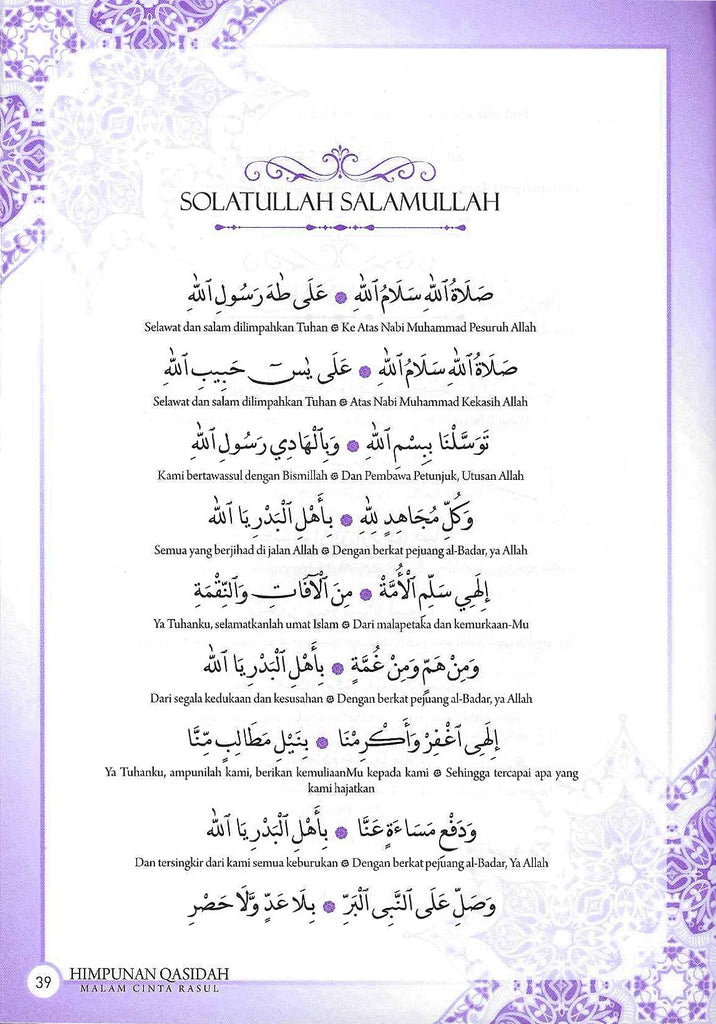 SOLATULLAH SALAMULLAH
صَلَاةُ ٱللهِ سَلَامُ ٱللهِ ۞ عَلَى طٰهَ رَسُولِ ٱللهِ
Selawat dan salam dilimpahkan Tuhan ۞ Ke Atas Nabi Muhammad Pesuruh Allah
صَلَاةُ ٱللهِ سَلَامُ ٱللهِ ۞ عَلَى يٰسٓ حَبِيبِ ٱللهِ
Selawat dan salam dilimpahkan Tuhan ۞ Atas Nabi Muhammad Kekasih Allah
تَوَسَّلْنَا بِبِسْمِ ٱللهِ ۞ وَبِالْهَادِي رَسُولِ ٱللهِ
Kami bertawassul dengan Bismillah ۞ Dan Pembawa Petunjuk, Utusan Allah
وَكُلِّ مُجَاهِدٍ لِلّٰهِ ۞ بِأَهْلِ ٱلْبَدْرِ يَا ٱللهُ
Semua yang berjihad di jalan Allah ۞ Dengan berkat pejuang al-Badar, ya Allah
إِلَهِي سَلِّمِ ٱلْأُمَّةْ ۞ مِنَ ٱلْآفَاتِ وَٱلنِّقْمَةِ
Ya Tuhanku, selamatkanlah umat Islam ۞ Dari malapetaka dan kemurkaan-Mu
وَمِنْ هَمٍّ وَمِنْ غُمَّةٍ ۞ بِأَهْلِ ٱلْبَدْرِ يَا ٱللهُ
Dari segala kedukaan dan kesusahan ۞ Dengan berkat pejuang al-Badar, ya Allah
إِلَهِى ٱغْفِرْ وَأَكْرِمْنَا ۞ بِنَيْلِ مَطَالِبٍ مِنَّا
Ya Tuhanku, ampunilah kami, berikan kemuliaanMu kepada kami ۞ Sehingga tercapai apa yang
kami hajatkan
وَدَفْعِ مَسَاءَةٍ عَنَّا ۞ بِأَهْلِ ٱلْبَدْرِ يَا ٱللهُ
Dan tersingkir dari kami semua keburukan ۞ Dengan berkat pejuang al-Badar, Ya Allah
وَصَلِّ عَلَى ٱلنَّبِى ٱلْبَرِّ ۞ بِلَا عَدٍّ وَّلَا حَصْرِ
39 HIMPUNAN QASIDAH
MALAM CINTA RASUL